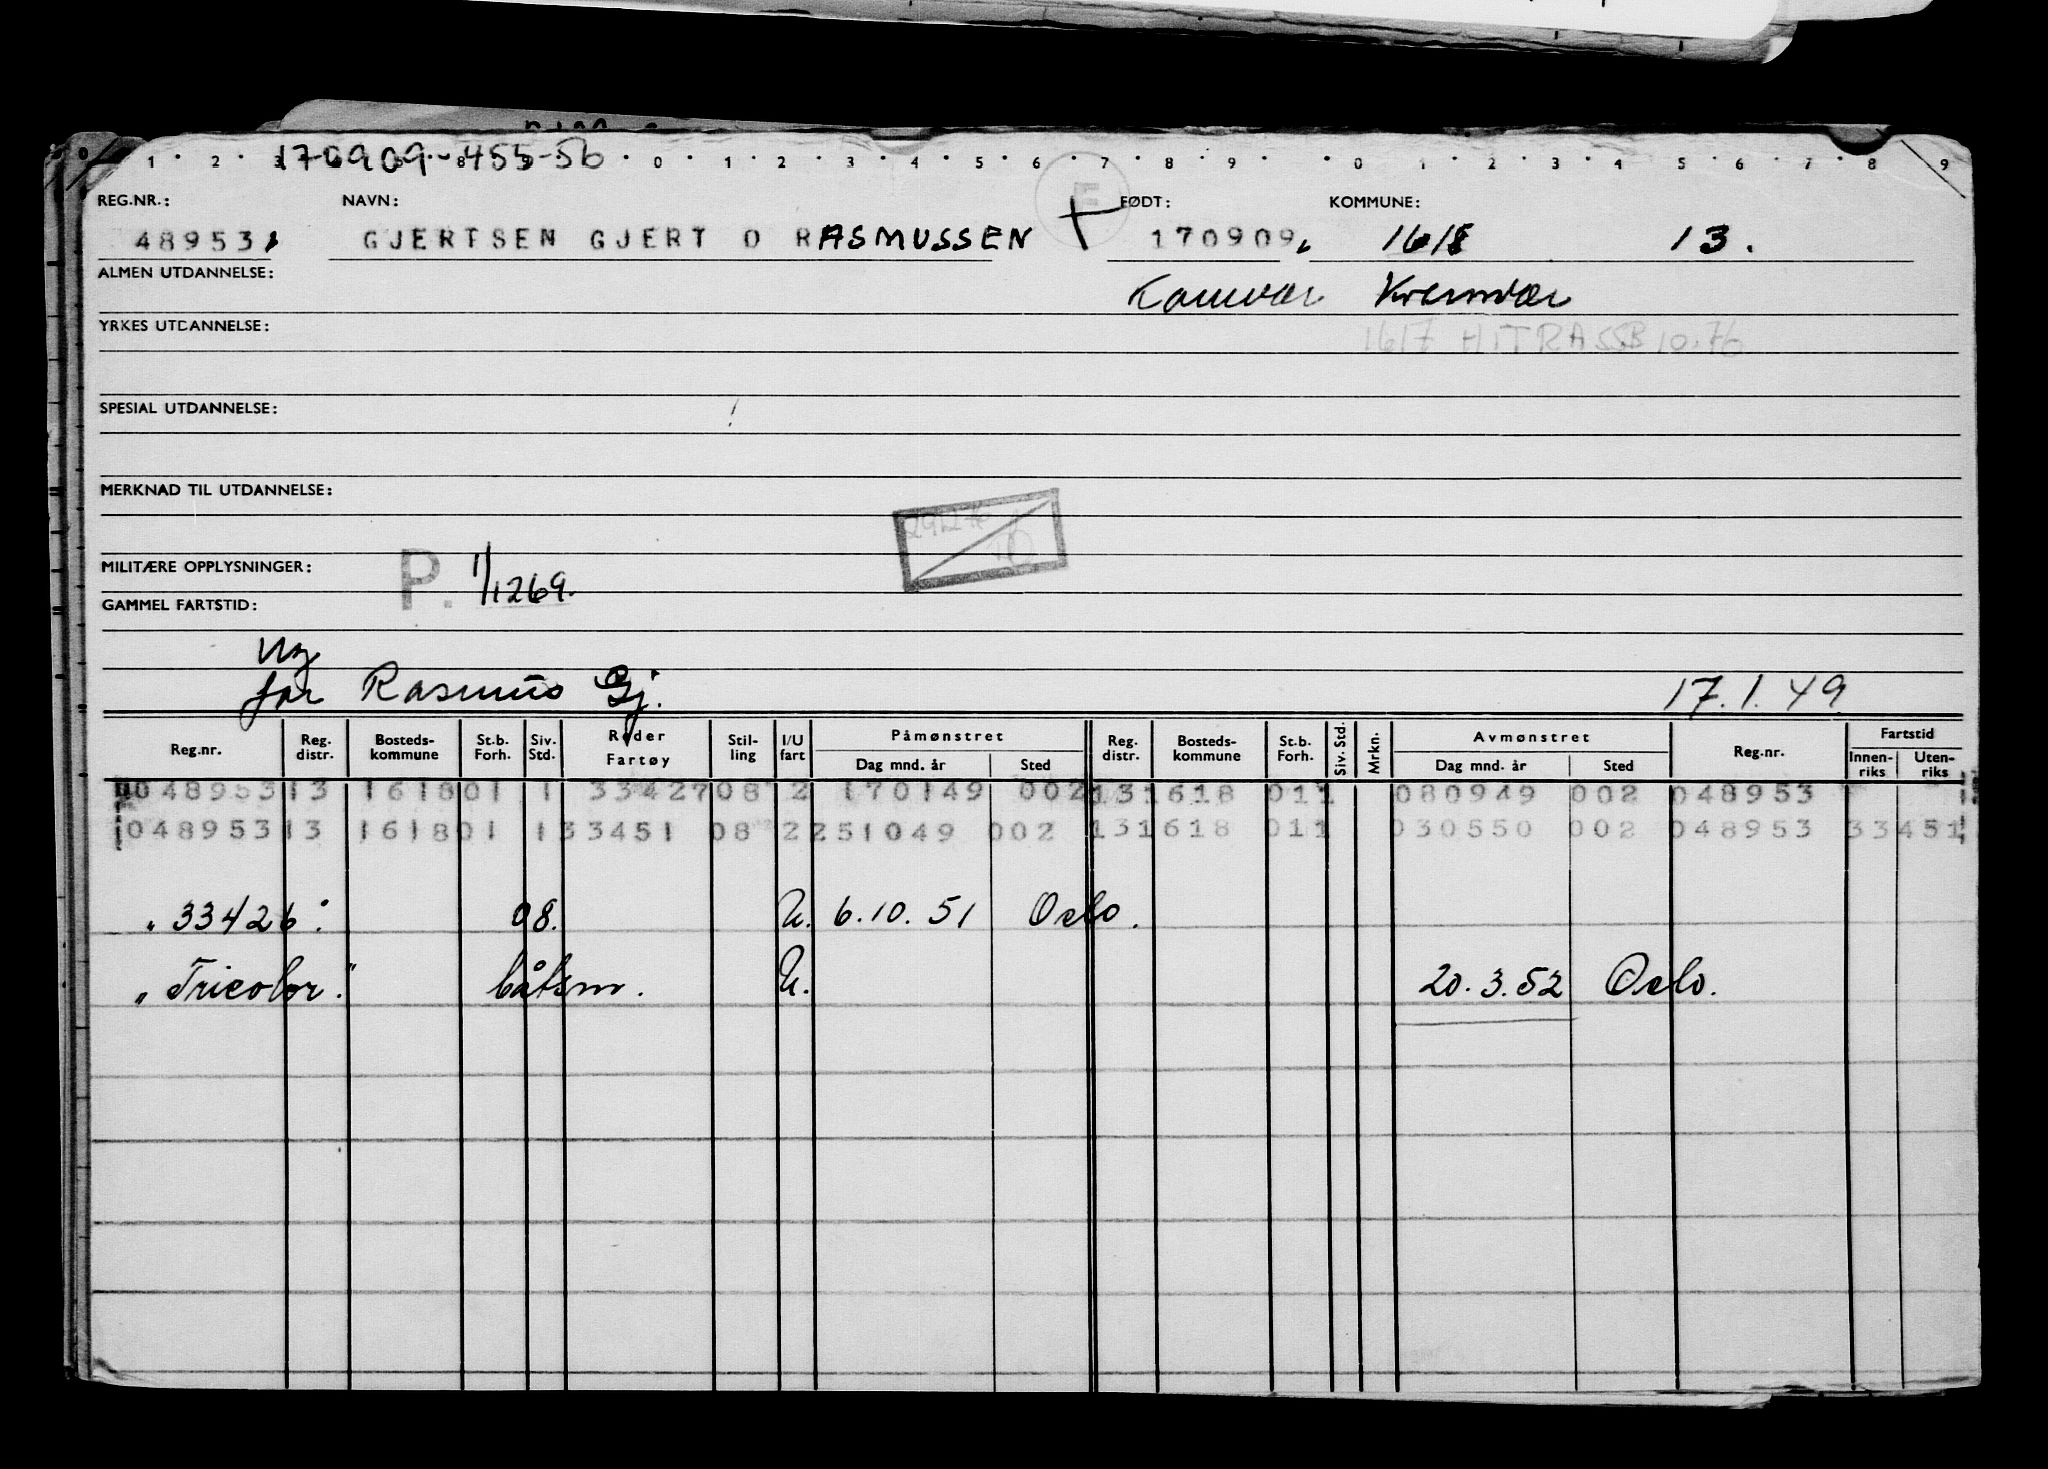 1 2 3 8 0 1 2 3 4 5 6 7 8 9 0 1 2 3 4 5 6 7 8 9
170909-455-56
REG.NR.: NAVN: FØDT: KOMMUNE:
48953 GJERTSEN GJERT O RASMUSSEN 170909 1618 13.
ALMEN UTDANNELSE:
YRKES UTDANNELSE:
1617 HITRA SSB 10.76
SPESIAL UTDANNELSE:
MERKNAD TIL UTDANNELSE:
MILITÆRE OPPLYSNINGER: P. 1/1269.
GAMMEL FARTSTID:
Ny
far Rasmus Gj. 17.1.49
Reg.nr. Reg. distr. Bosteds-kommune St.b. Forh. Siv. Std. Reder Fartøy Stil-ling I/U fart Påmønstret Dag mnd. år Sted Reg. distr. Bosteds-kommune St.b. Forh. Siv. Std. Mrkn. Avmønstret Dag mnd. år Sted Reg.nr. Fartstid Innen-riks Uten-riks
048953 13 1618 01 1 33427 08 2 170149 002 13 1618 01 1 080949 002 048953
048953 13 1618 01 1 33451 08 2 251049 002 13 1618 01 1 030550 002 048953 33451
" 33426 : 08. U. 6.10.51 Oslo.
" Tricolor." båtsm. U. 20.3.52 Oslo.